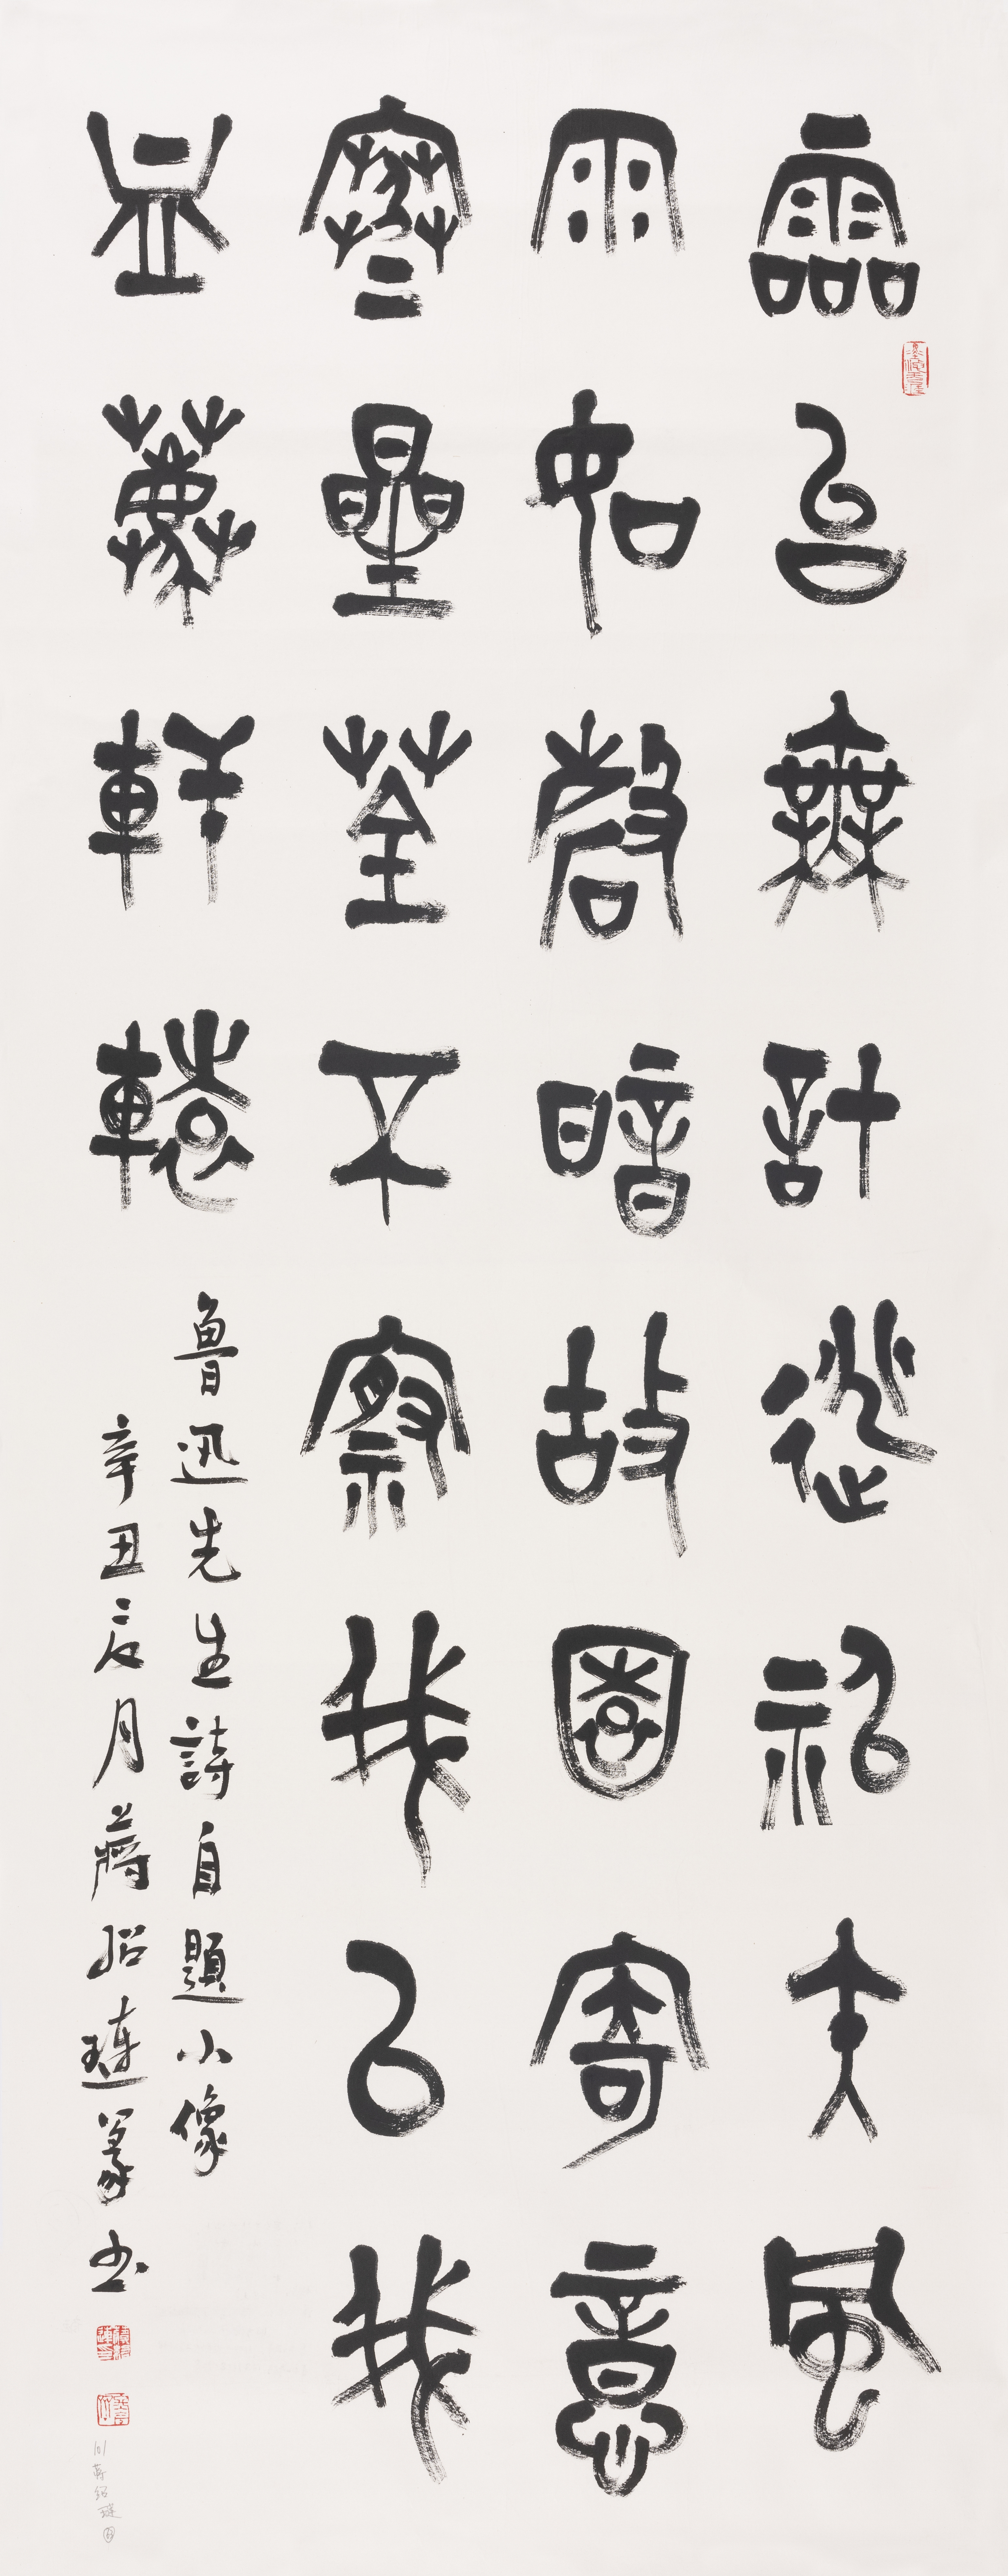 靈台無計逃神矢風
雨如磐暗故園寄意
寒星荃不察我以我
血薦軒轅
魯迅先生詩自題小像
辛丑辰月蔣紹璉篆書
蔣紹璉